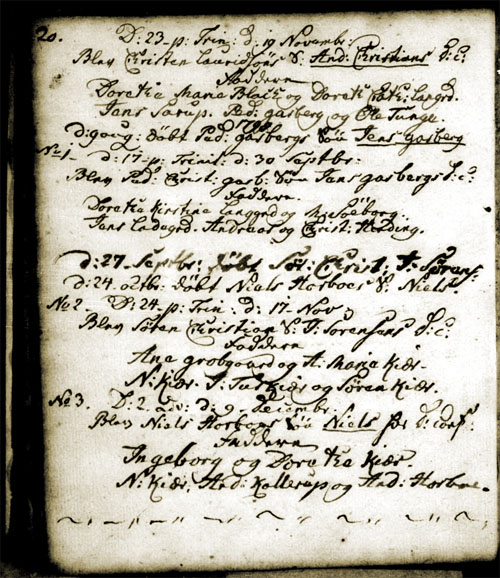 20. D: 23-p: Trin: d: 19 Novembr:
Blev Christen Lauridsøns S: And: Christians D: C:
Faddern
Dorethe Maria Black og Doreth Cath: Langrd.
Jens Sarup. Ped: gasberg og Ole Tunge.
d: 9 aug: døbt Ped: gasbergs Søn Jens Gasberg
No 1- d: 17-p: Trinit: d: 30 Septbr:
Blev Ped: Christ: gasb: Søn Jens gasbergs D: C:
Faddern.
Dorethe Kirstina Langgrd og
Jens Ladegrd. Andreas og Christ: Herding.
d: 27- Septbr: døbt Sør: Christ: J: Sørens:
d: 24. octb: døbt Niels Horboes S: Niels.
No 2- D: 24 p: Trin: d: 17- Nov:
Blev Søren Christian S: J: Sorensens D: C:
Faddern
Ana grobgaard og A: Maria Kiær.
N: Kiær. J: Juul Kiær og Søren Kiær.
No 3. D: 2. Adv: d: 9 Decembr:
Blev Niels Horboes Søn Niels D: conf:
Faddern
Ingeborg og Dorethe Kiær.
N: Kiær. And: Kollerup og And: Horboe.